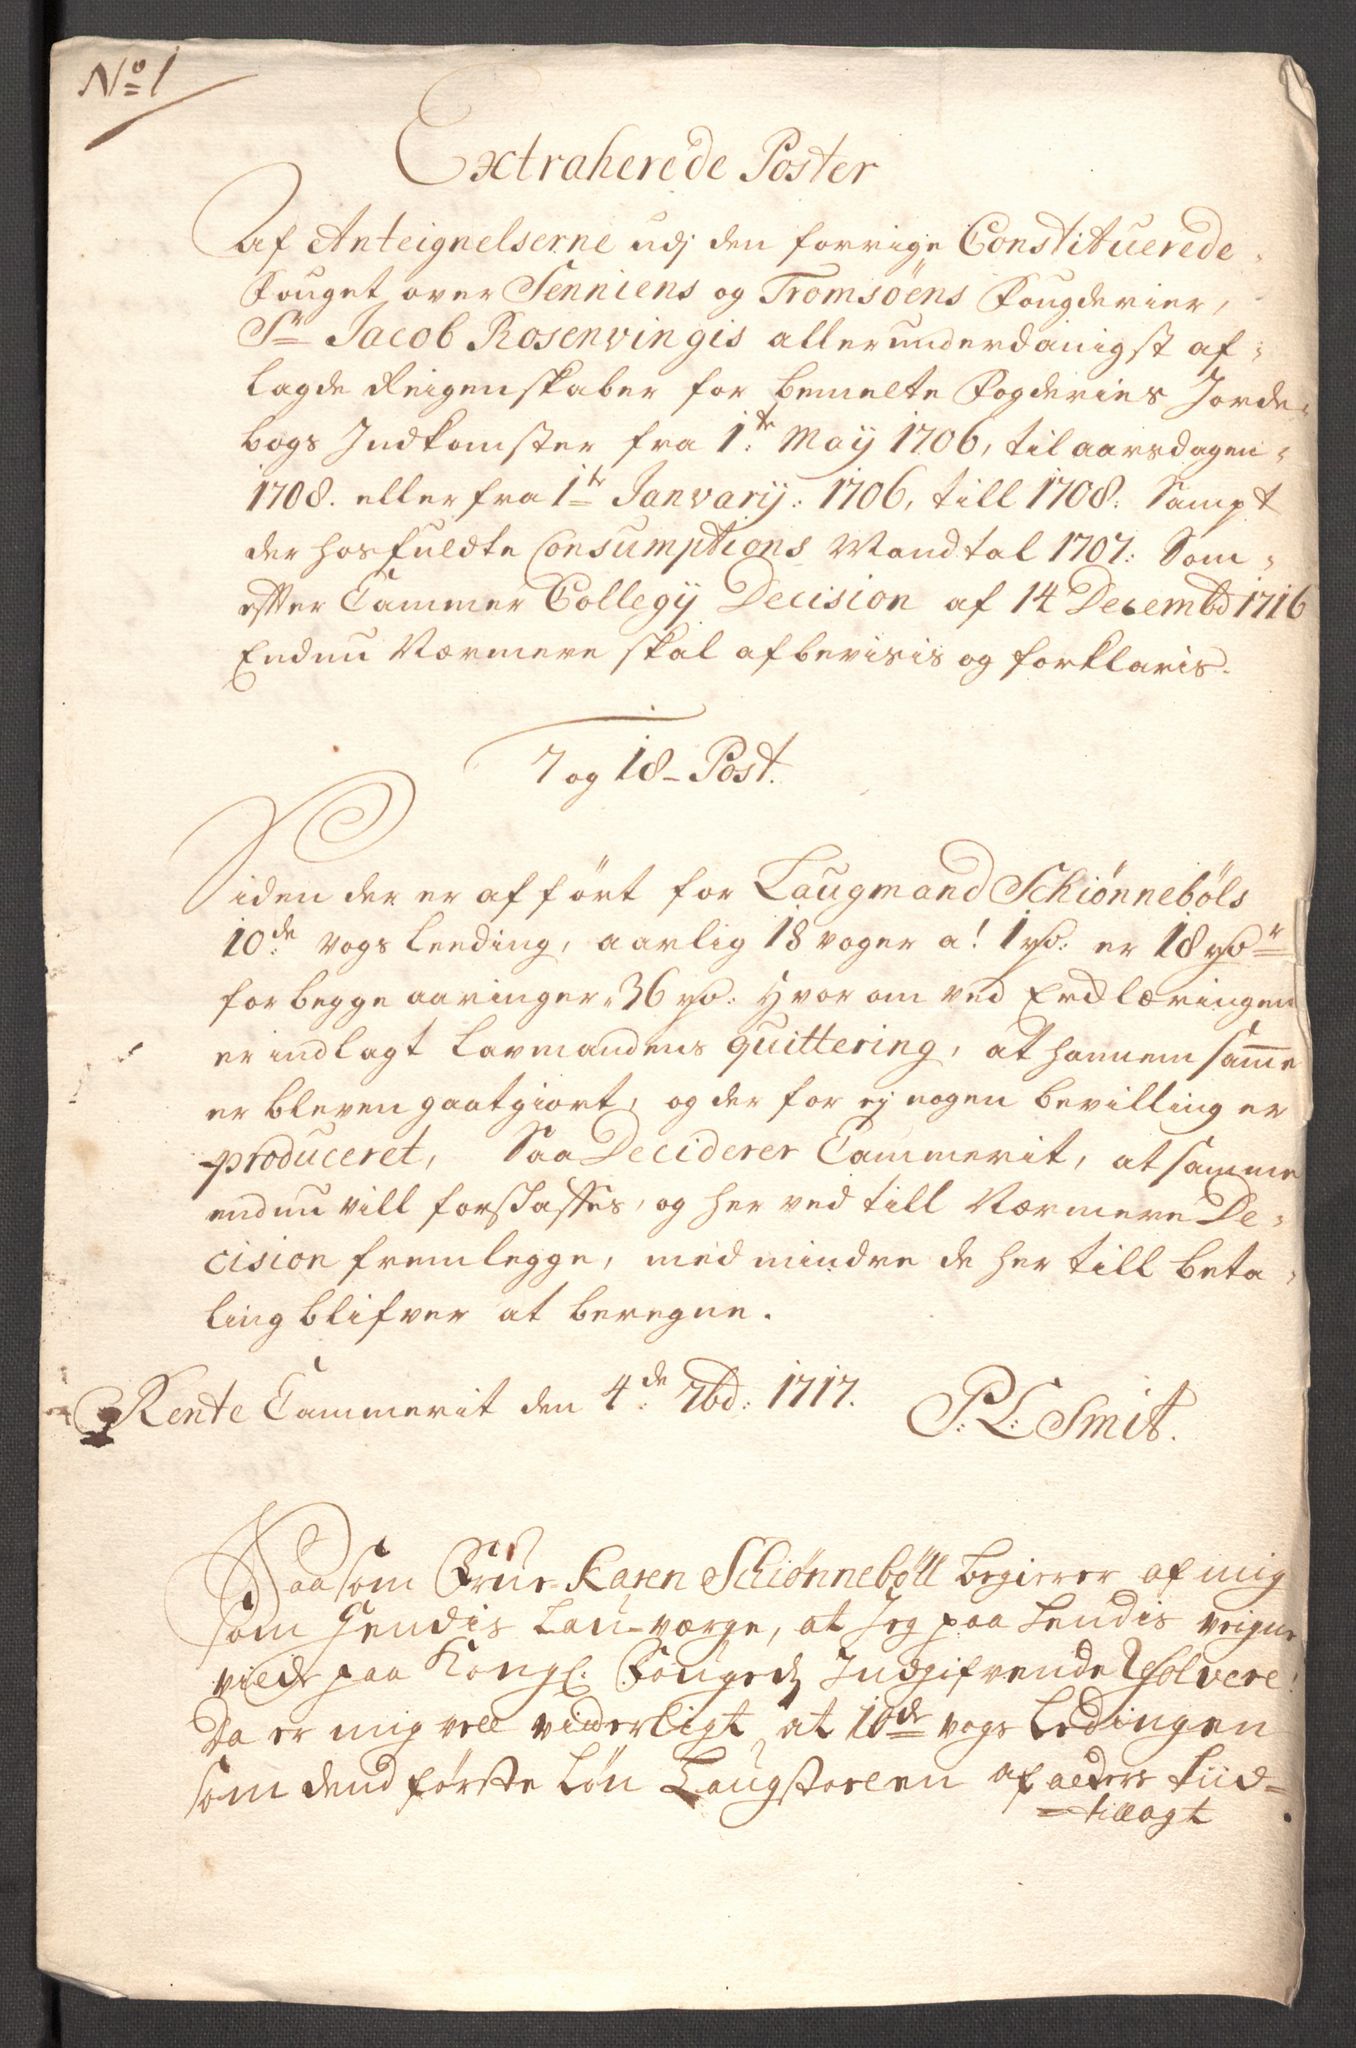 No 1
Extraherede Poster
Af Anteignelserne udj den forrige Constituerede
Fouget over Senniens og Tromsöens Fougderier,
Sr Jacob Rosenvingis allerunderdanigst af-
lagde Reigenskaber for bemelte Fogderies Jorde-
bogs Indkomster fra 1te May 1706, til aarsdagen
1708. eller fra 1te Janvarij: 1706, till 1708. Sampt
der hosfuldte Consumptions Mandtal 1707: Som
efter Cammer Collegij Decision af 14 Decembd 1716
Endnu Nærmere skal afbevisis og forklaris.
7 og 18- Post.
Siden der er affört for Laugmand Schiönneböls
10de vogs Leeding, aarlig 18 voger a! 1 rd: er 18 rdr
for begge aaringer, 36 rd: Hvorom ved Erdlæringen
er indlagt Lavmandens quittering, at hannem samme
er bleven gaatgiort, og der for ej nogen bevilling er
produceret, Saa Deciderer Cammerit, at samme
endnu vill forskaffes, og her ved till Nærmere De-
cision fremlegge, med mindre de her till beta-
ling blifver at beregne.
Rente Cammerit den 4de 7bd: 1717. P: L: Smit.
Saasom Frue Karen Schiønnebøll begierer af mig
som hendis Lau-værge, at Jeg paa hendis veigne
vilde paa Kongl. Fougeds Indgifvende
Da er mig vell viderligt, at 10de vogs Ledingen
som dend første Løn Laugstoelen af alders tiid
tillagt